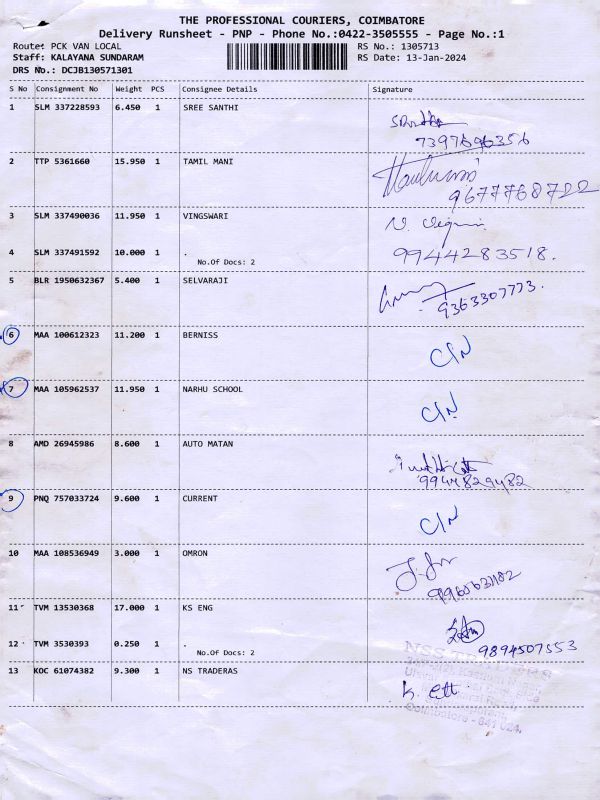 THE PROFESSIONAL COURIERS, COIMBATORE
Delivery Runsheet - PNP - Phone No.:0422-3505555 - Page No.:1
Route: PCK VAN LOCAL RS No.: 1305713
Staff: KALAYANA SUNDARAM RS Date: 13-Jan-2024
DRS No.: DCJB130571301
S No Consignment No Weight PCS Consignee Details Signature
1 SLM 337228593 6.450 1 SREE SANTHI
7397696356
2 TTP 5361660 15.950 1 TAMIL MANI
9677768722
3 SLM 337490036 11.950 1 VINGSWARI
4 SLM 337491592 10.000 1 . 9944283518.
No.Of Docs: 2
5 BLR 1950632367 5.400 1 SELVARAJI
9363307773.
6 MAA 100612323 11.200 1 BERNISS
C/N
7 MAA 105962537 11.950 1 NARHU SCHOOL
C/N
8 AMD 26945986 8.600 1 AUTO MATAN
9944829482
9 PNQ 757033724 9.600 1 CURRENT
C/N
10 MAA 108536949 3.000 1 OMRON
11 TVM 13530368 17.000 1 KS ENG
12 TVM 3530393 0.250 1 . 9894507553
No.Of Docs: 2
13 KOC 61074382 9.300 1 NS TRADERAS
Coimbatore - 641 024.